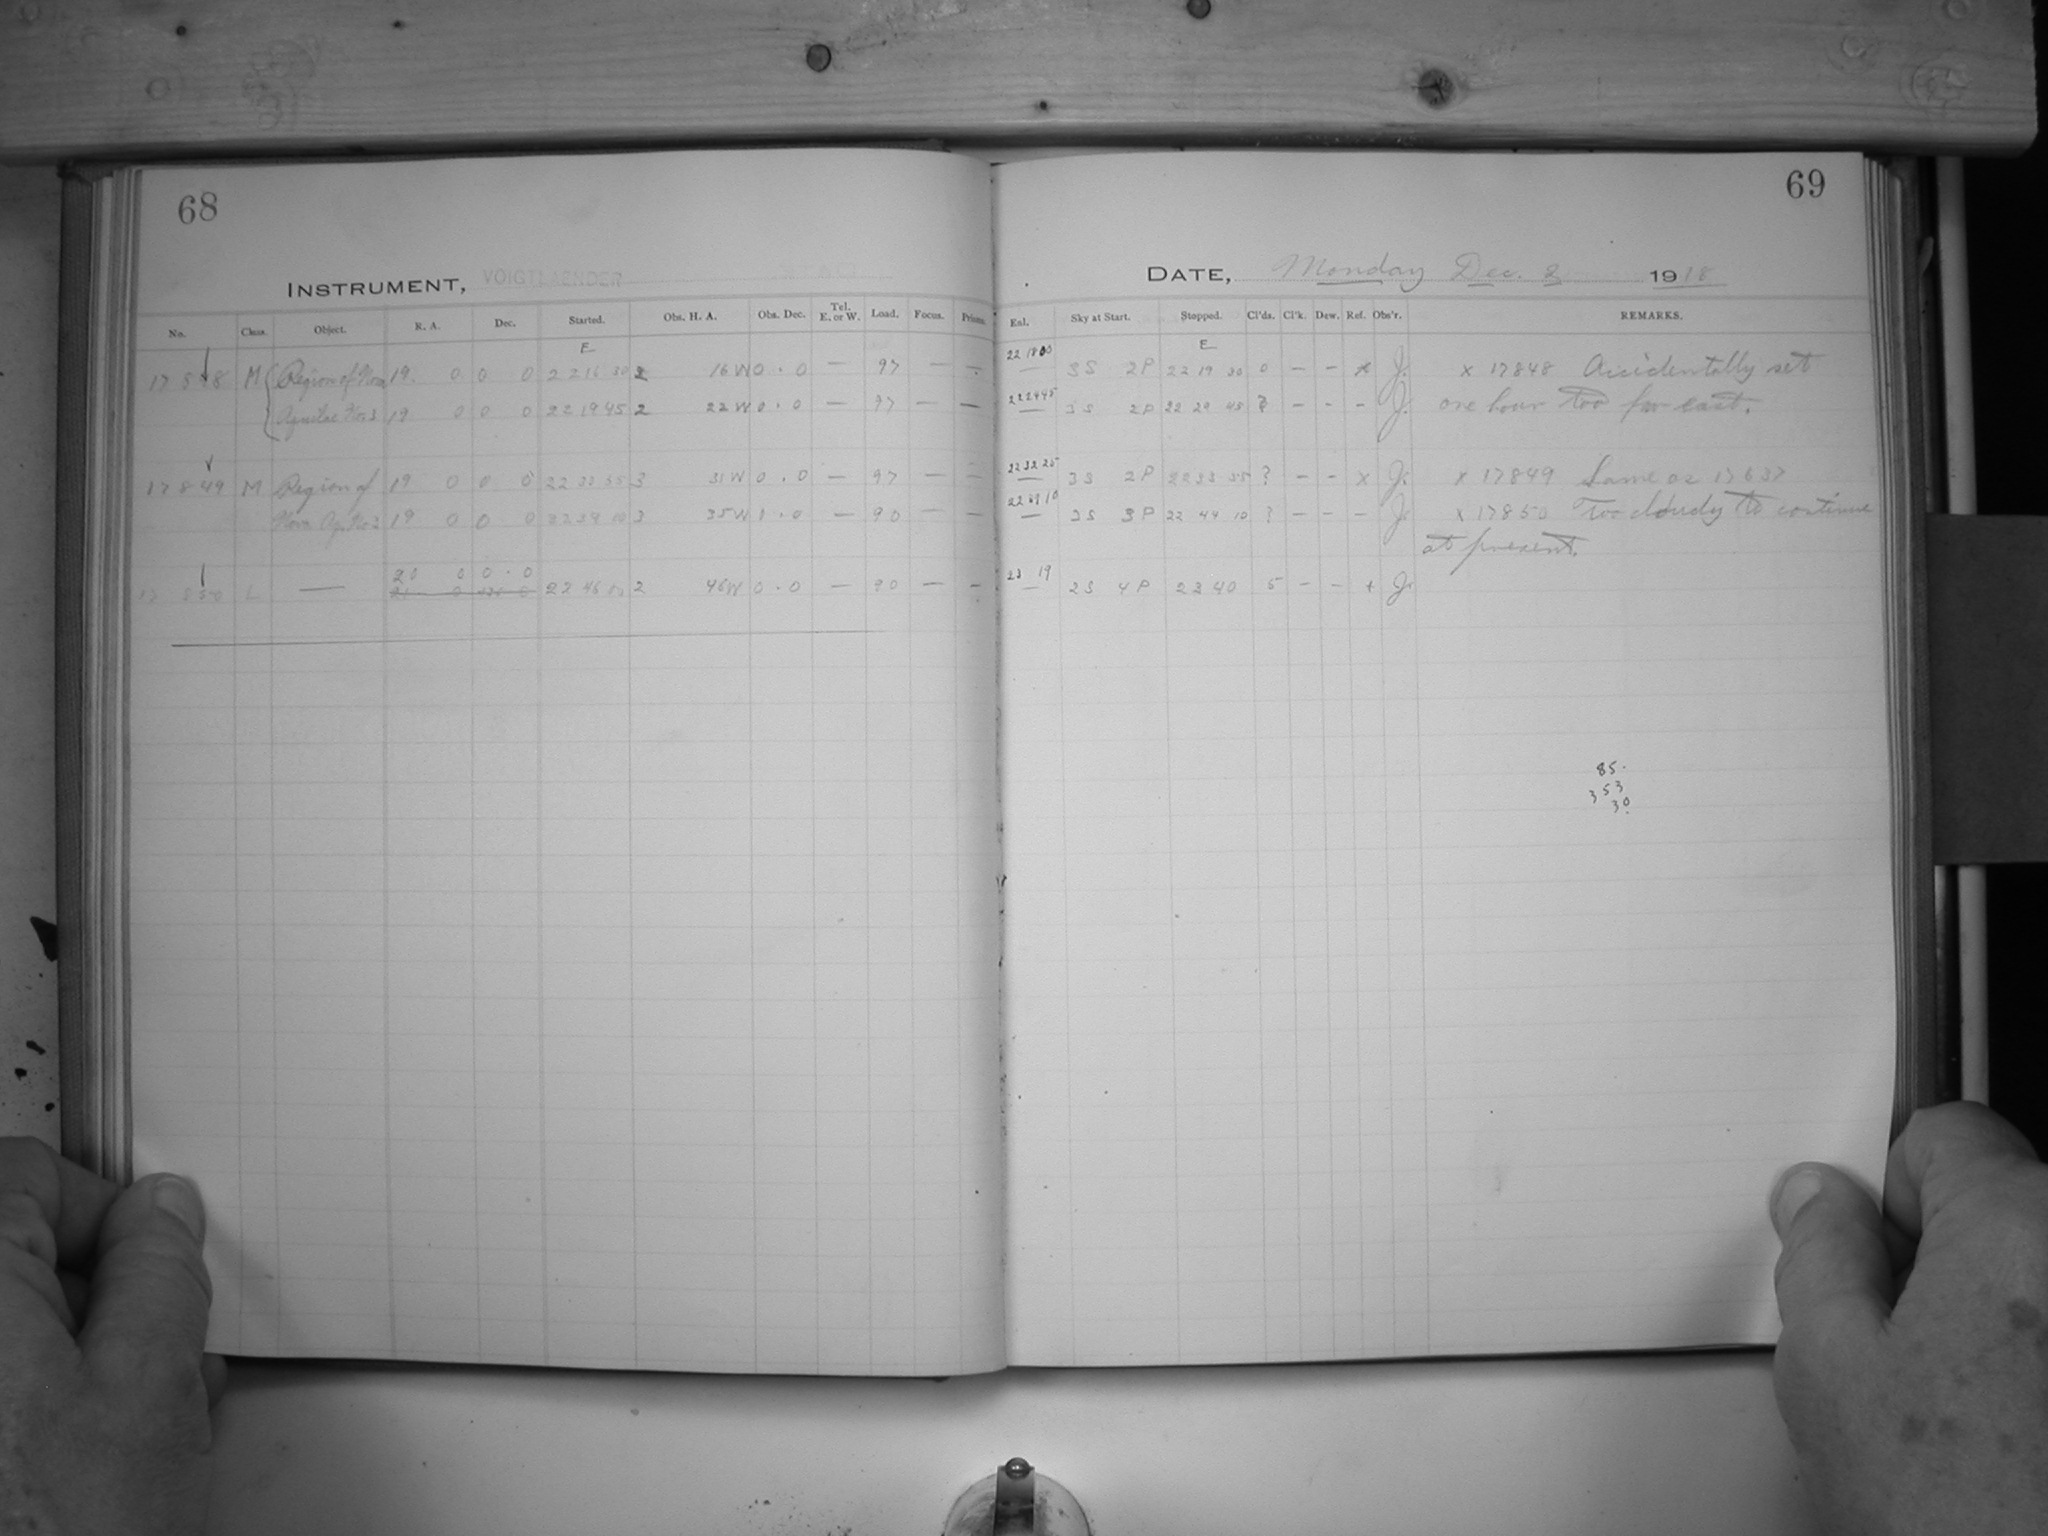 68
INSTRUMENT, VOIGTLAENDER
No. Class. Object. R. A. Dec. Started. Obs. H. A. Obs. Dec. Tel. E. or W. Load. Focus. Prisms.
E
17 848 M Region of Nova 19. 0 0 0 22 16 30 2 16 W 0 . 0 — 97 — —
Aquilae No 3 19 0 0 0 22 19 45 2 22 W 0 . 0 — 97 — —
17 849 M Region of 19 0 0 0 22 3 31 W 0 . 0 — 97 — —
Nova Aq. No 3 19 0 0 0 3 35 W . 0 — 90 — —
20 0 0 . 0
17 850 L — 22 46 2 46 W 0 . 0 — 90 — —
69
DATE, Monday Dec. 1918
Enl. Sky at Start. Stopped. Cl'ds. Cl'k. Dew. Ref. Obs'r. REMARKS.
E
22 18 00
— 3 S 2 P 22 19 30 0 — — x J. x 17848 Accidentally set
22 24 45
— 3 S 2 P 22 29 45 ? — — — J. one hour too far east.
22 32 25
— 3 S 2 P 22 33 55 ? — — x J. x 17849 Same as 17637
— 3 S 3 P 22 44 10 ? — — — J. x 17850 Too cloudy to continue
at present.
23 19
— 2 S 4 P 23 40 5 — — + J.
85.
353
30.